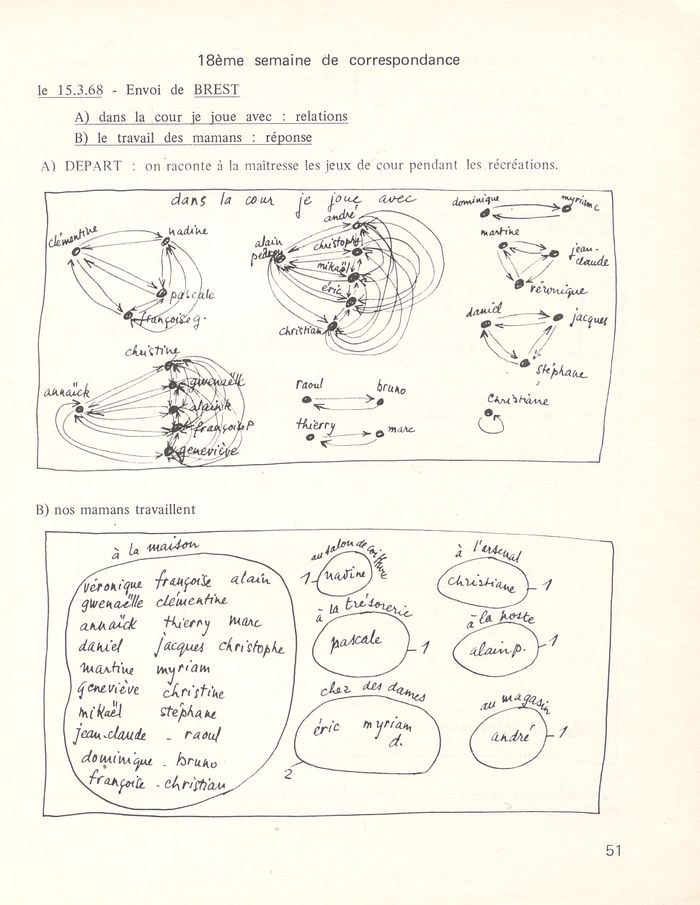 18ème semaine de correspondance
le 15.3.68 - Envoi de BREST
A) dans la cour je joue avec : relations
B) le travail des mamans : réponse
A) DEPART : on raconte à la maîtresse les jeux de cour pendant les récréations.
dans la cour je joue avec
clémentine
nadine
pascale
françoise g.
andré
alain
pedron
christophe
mikaël
éric
christian
dominique
myriam c
martine
jean-
claude
véronique
daniel
jacques
stéphane
christiane
christine
annaïck
gwenaëlle
alain k
françoise P
geneviève
raoul
bruno
thierry
marc
B) nos mamans travaillent
à la maison
véronique françoise alain
gwenaëlle clémentine
annaïck thierry marc
daniel jacques christophe
martine myriam
geneviève christine
mikaël stéphane
jean-claude - raoul
dominique - bruno
françoise - christian
au salon de coiffure
nadine
1
à l'arsenal
christiane
1
à la trésorerie
pascale
1
à la poste
alain p.
1
chez des dames
éric myriam
d.
2
au magasin
andré
1
51